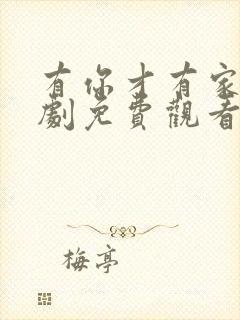 有你才有家
劇免費觀看
梅亭